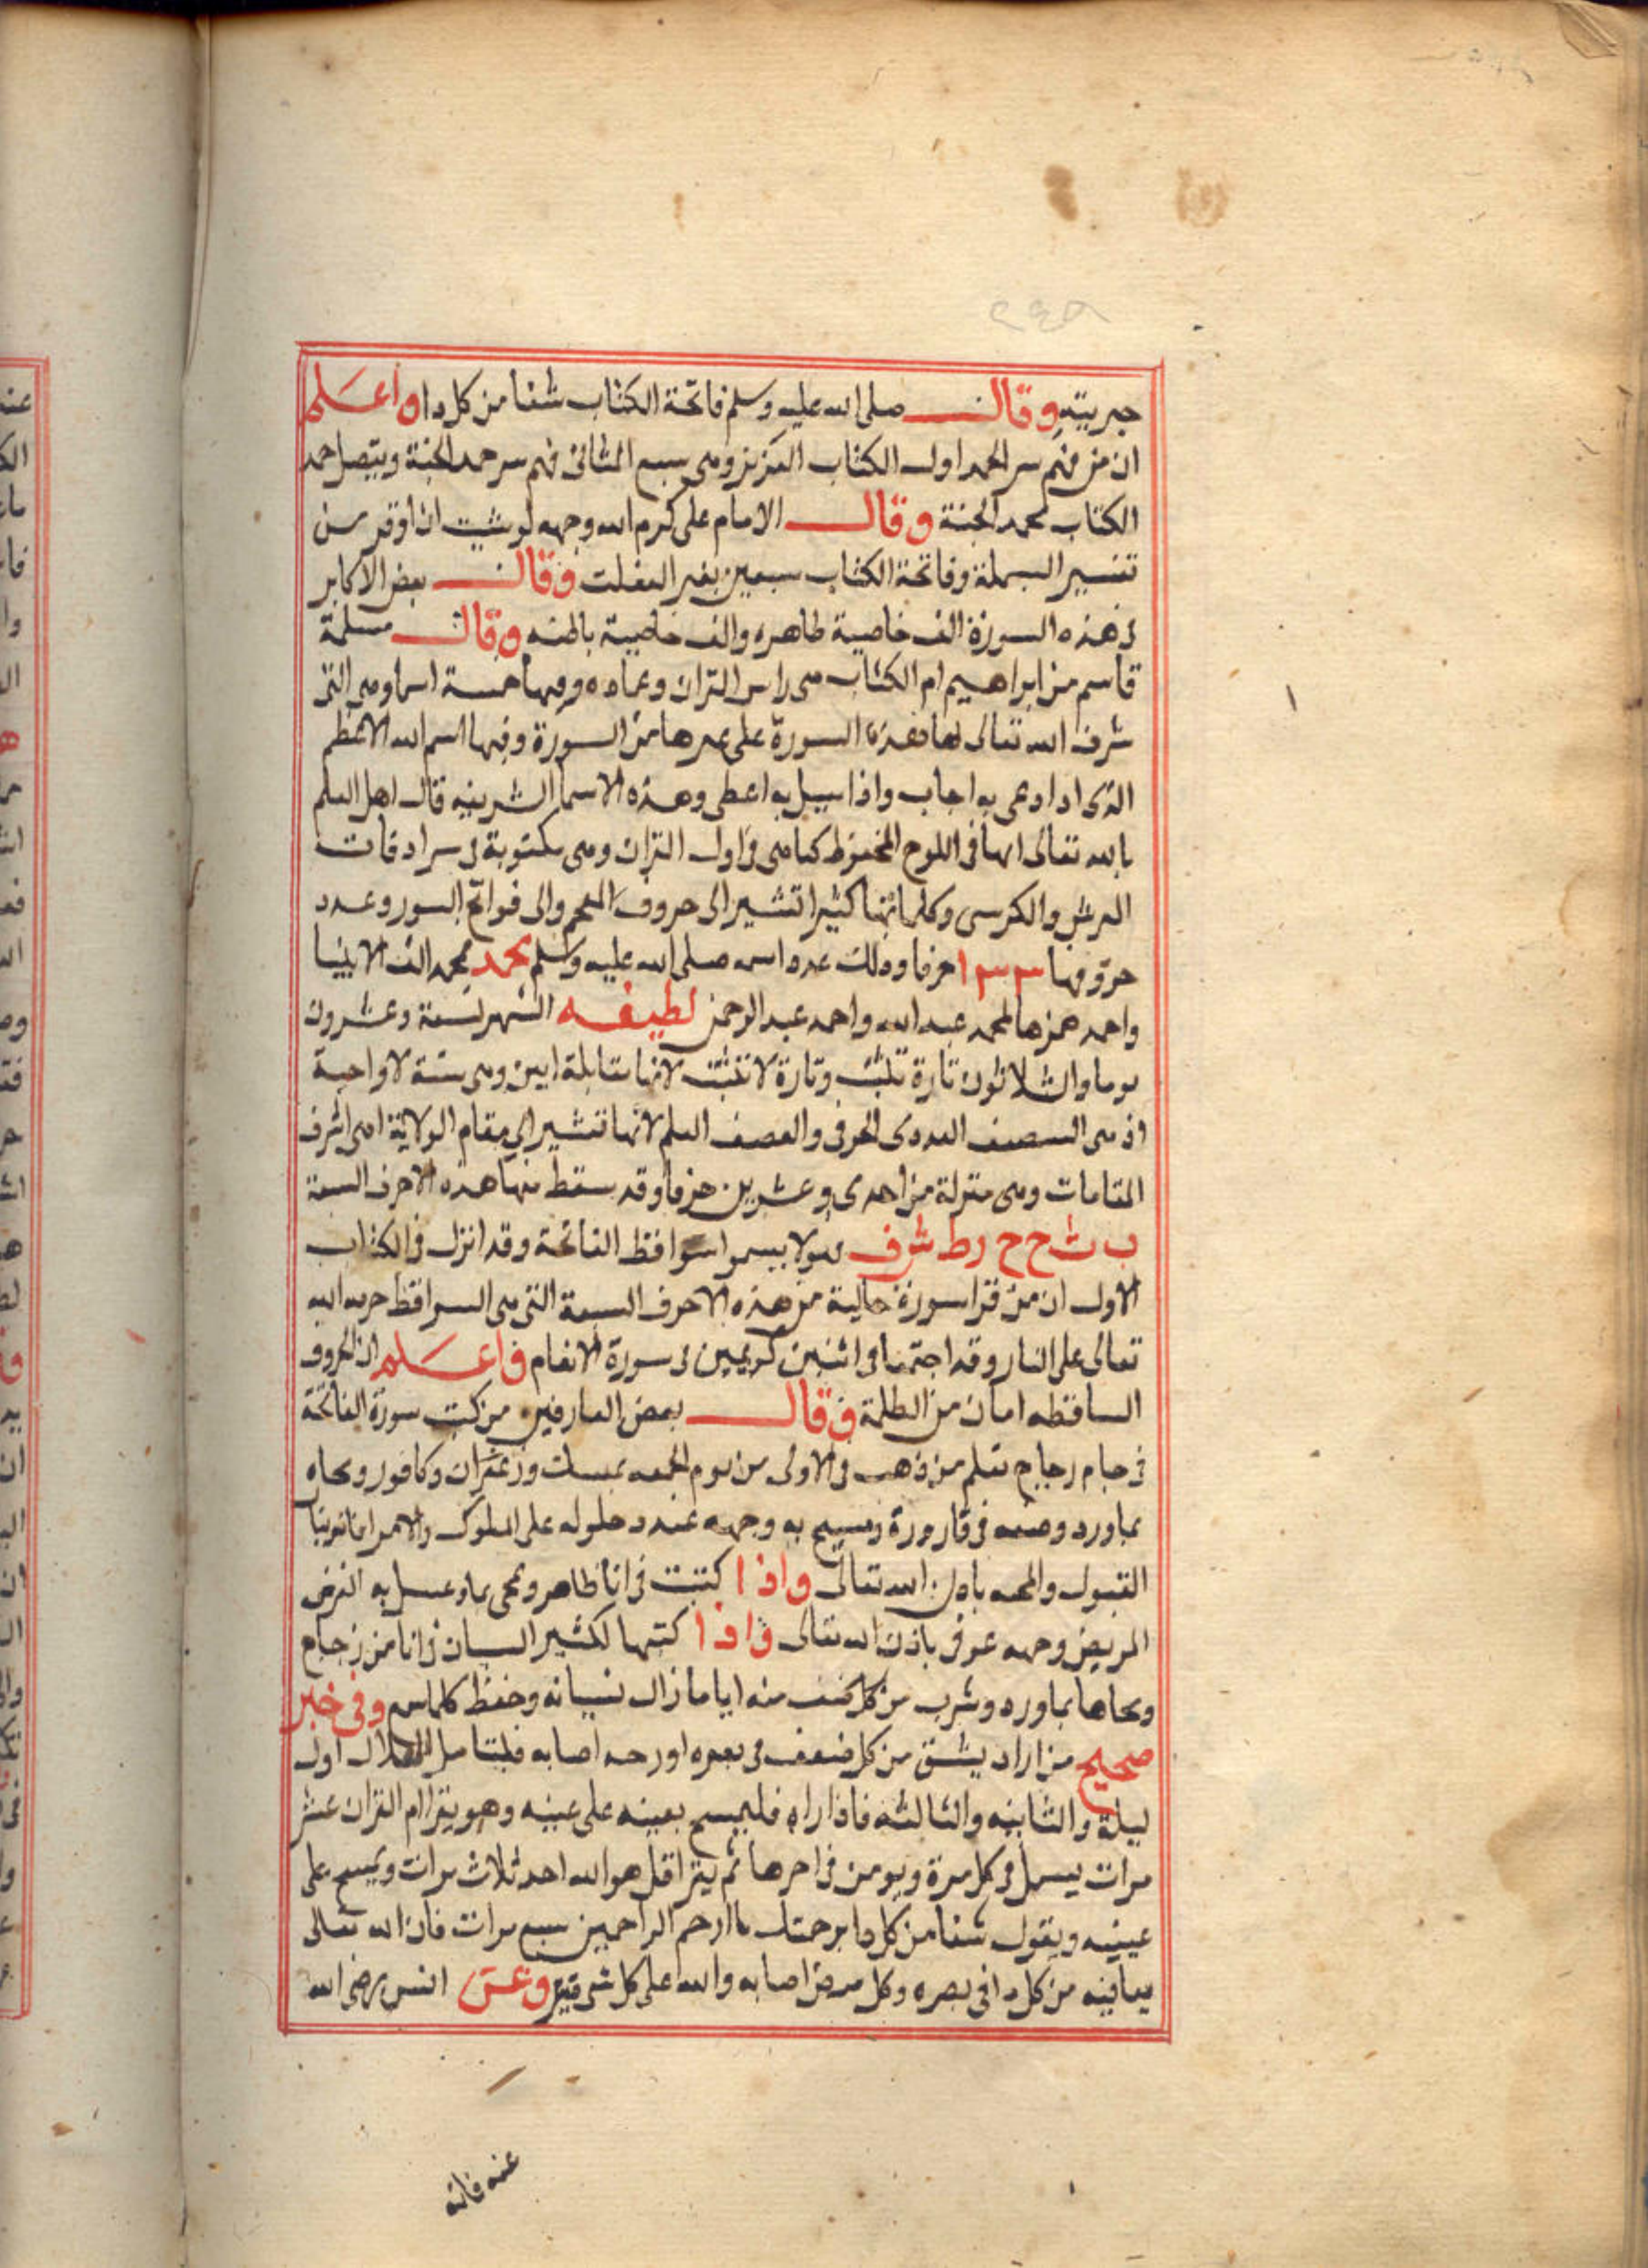 وقال صلى الله عليه وسلم فاتحة الكتاب شفا من كل دا واعلم
ان من فهم سر الحمد اول الكتاب العزيز وهي سبع المثاني فهم سر حمد الجنة ويتصل حمد
الكتاب بحمد الجنة وقال الامام علي كرم الله وجهه لو شيت ان اوقر من
تفسير البسملة وفاتحة الكتاب سبعين بعير الفعلت وقال بعض الاكابر
في هذه السورة الف خاصية ظاهره والف خاصية باطنه وقال مسلمة
قاسم من ابراهيم ام الكتاب هي راس القران وعماده وفيها خمسة اسما وهي التي
شرف الله تعالى بها هذه السورة على غيرها من السورة وفيها اسم الله الاعظم
الذي اذا دعي به اجاب واذا سيل به اعطى وهذه الاسما الشريفه قال اهل العلم
بالله تعالى انها في اللوح المحفوظ كما هي في اول القران وهي مكتوبة في سرادقات
العرش والكرسي وكلماتها كثيرا تشير الى حروف المعجم والى فواتح السور وعدد
حروفها ١٣٣ حرفا وذلك عدد اسمه صلى الله عليه وسلم محمد الف الانبيا
واحمد همزها محمد عبد الله واحمد عبد الرحمن لطيفه الشهر تسعة وعشرون
يوما والثلاثون تارة تثبت وتارة لا تثبت لانها مقابلة امين وهي سنة لا واجبة
اذ هي النصف العددي الحرفي والنصف العلم لانها تشير الى مقام الولاية اهي اشرف
المقامات وهي منزلة من احدى وعشرين حرفا وقد سقط منها هذه الاحرف السبعة
ب ث ج ح ر ط ش ف سواقط الفاتحة وقد انزل في الكتاب
الاول ان من قرا سورة خالية من هذه الاحرف السبعة التي هي السواقط حرمه الله
تعالى على النار وقد اجتمعا في اثنين كريمين في سورة الانعام فاعلم ان الحروف
الساقطه امان من الظلمة وقال بعض العارفين من كتب سورة الفاتحة
في جام زجاج بقلم من ذهب في الاولى من يوم الجمعه بمسك وزعفران وكافور ومحاه
بماورد وضعه في قارورة ومسح به وجهه عند دخلوله على الملوك والامرا
القبول والمحبه باذن الله تعالى واذا كتبت في انا ظاهر ومحي بماء وغسل به
المريض وجهه عوفي باذن الله تعالى واذا كتبها لكثير النسيان في انا من زجاج
ومحاها بماورد وشرب من كل منه اياما زال نسيانه وحفظ كلما وفي خبر
صحيح من اراد يشق من كل ضعف في بصره او اصابه فليتامل الهلال اول
ليلة والثانيه والثالثه فاذا راه فليمسح بيمينه على عينيه وهو يقرا ام القران عشر
مرات يبسمل في كل مرة ويومن في اخرها ثم يقرا قل هو الله احد ثلاث مرات ويمسح على
عينيه ويقول شفا من كل دا برحمتك يا ارحم الراحمين سبع مرات فان الله تعالى
يعافيه من كل دا في بصره وكل مرض اصابه والله على كل شي قدير وعن انس رضي الله
عنه قال